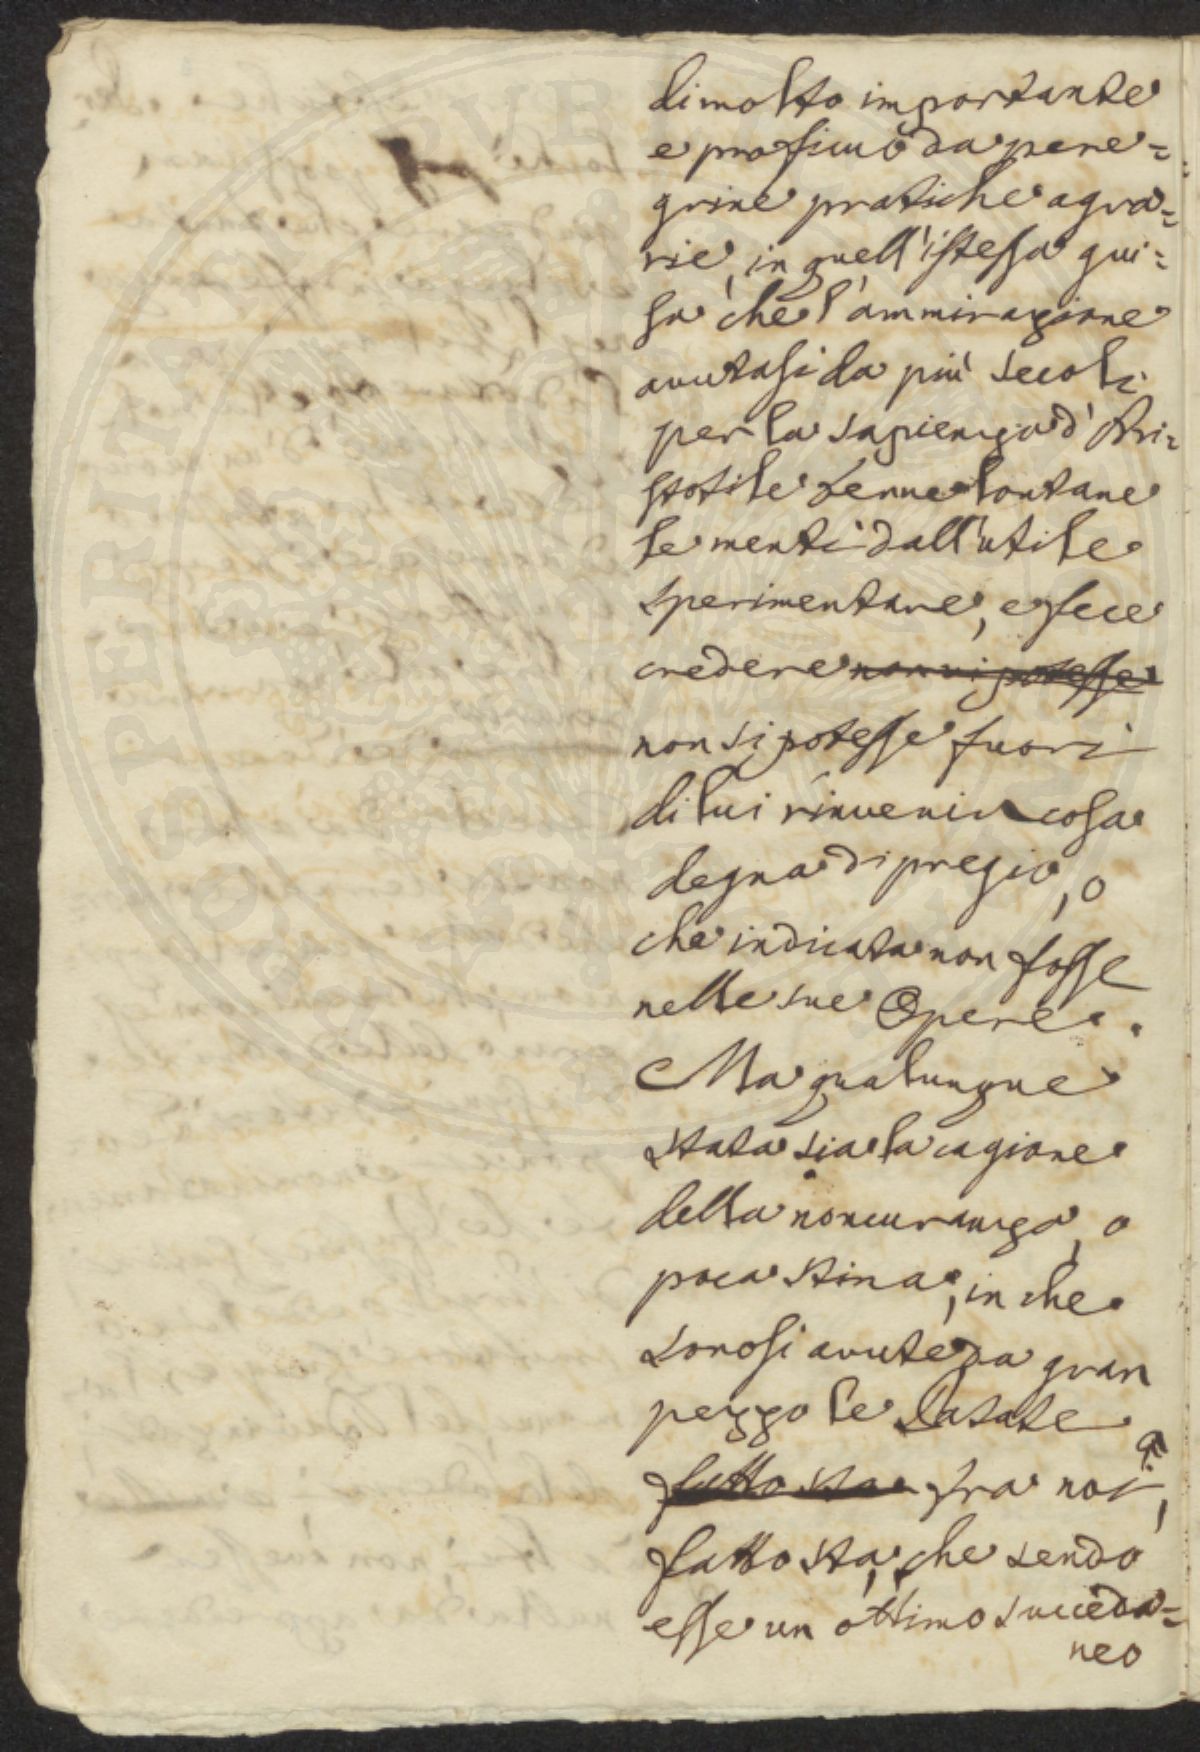 di molto importante
e proficuo da pere=
grine pratiche agra=
rie, in quell'istessa gui=
sa che l'ammirazione
avutasi da più secoli
per la sapienza d'Ari=
stotile tenne lontane
le menti dall'utile
sperimentare, e fece
credere non vi potesse
non si potesse fuori
di lui rinvenir cosa
degna di pregio, o
che indicata non fosse
nelle sue Opere.
Ma qualunque
stata sia la cagione
della noncuranza, o
poca stima, in che
sonosi avute da gran
pezzo le Patate
fatto sta fra noi,
fatto sta, che sendo
esse un ottimo succeda=
neo